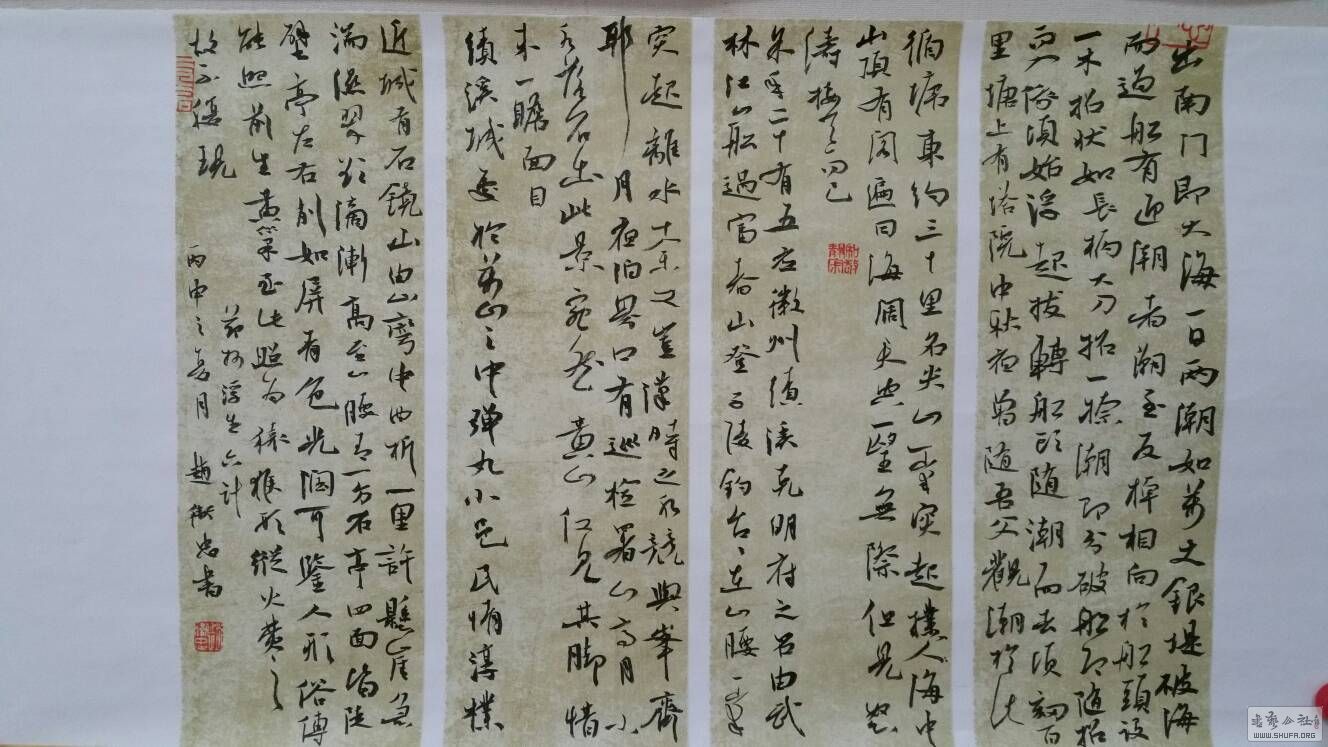 出南门即大海一日两潮如萬丈銀堤破海
而過船有迎潮者潮至反棹相向於船頭設
一木招状如長柄大刀招一捺潮即分破船即随招
而入俄頃始浮起拔轉船頭随潮而去頃刻百
里塘上有塔院中秋夜曾随吾父觀潮於此
循塘東約三十里名尖山一峯突起撲人海中
山頂有阁遍曰海阔天空一望無際但見怒
濤接天而已
余年二十有五应徽州績溪克明府之召由武
林江山船過富春山登子陵钓台々在山腰一峯
突起離水十余丈豈漢時之水競與峯齊
耶月夜泊界口有巡检署山高月小
水落石出此景宛然黄山仅見其脚惜
未一瞻面目
績溪城處於萬山之中弹丸小邑民情淳樸
近城有石鏡山由山彎中曲折一里許懸崖急
湍濕翠欲滴漸高至山腰有一方石亭四面皆陡
壁亭左右削如屏青色光润可鑒人形俗傳
能照前生黄巢至此照为猿猴形縱火焚之
故不復現
節抄浮生六计
丙申之夏月 趙忠書
WWW.SHUFA.ORG